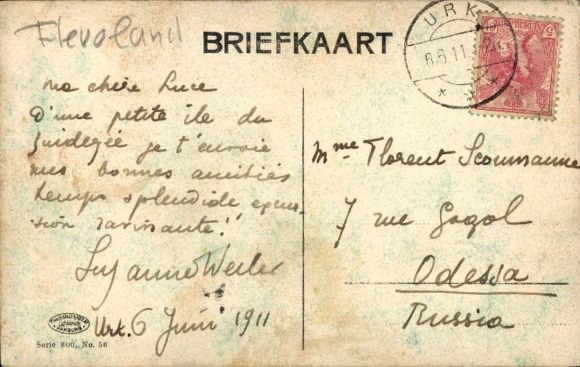 Flevoland
BRIEFKAART
URK
6.6.11
5
ma chère Luce
D'une petite île du
Zuiderzée je t'envoie
mes bonnes amitiés
temps splendide excur-
sion ravissante!!
Suzanne Weiler
Urk. 6 Juin 1911
Mme Florent
7 rue Gogol
Odessa
Russia
HAMBURG
Serie 600, No. 56